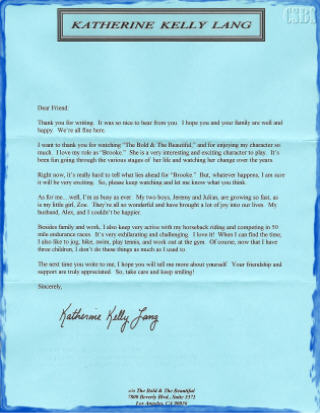 CSBS
KATHERINE KELLY LANG
Dear Friend:
Thank you for writing. It was so nice to hear from you. I hope you and your family are well and
happy. We're all fine here.
I want to thank you for watching "The Bold & The Beautiful," and for enjoying my character so
much. I love my role as "Brooke." She is a very interesting and exciting character to play. It's
been fun going through the various stages of her life and watching her change over the years.
Right now, it's really hard to tell what lies ahead for "Brooke." But, whatever happens, I am sure
it will be very exciting. So, please keep watching and let me know what you think.
As for me... well, I'm as busy as ever. My two boys, Jeremy and Julian, are growing so fast, as
is my little girl, Zoe. They're all so wonderful and have brought a lot of joy into our lives. My
husband, Alex, and I couldn't be happier.
Besides family and work, I also keep very active with my horseback riding and competing in 50
mile endurance races. It's very exhilarating and challenging. I love it! When I can find the time,
I also like to jog, bike, swim, play tennis, and work out at the gym. Of course, now that I have
three children, I don't do these things as much as I used to.
The next time you write to me, I hope you will tell me more about yourself. Your friendship and
support are truly appreciated. So, take care and keep smiling!
Sincerely,
Katherine Kelly Lang
c/o The Bold & The Beautiful
7800 Beverly Blvd., Suite 3371
Los Angeles, CA 90036